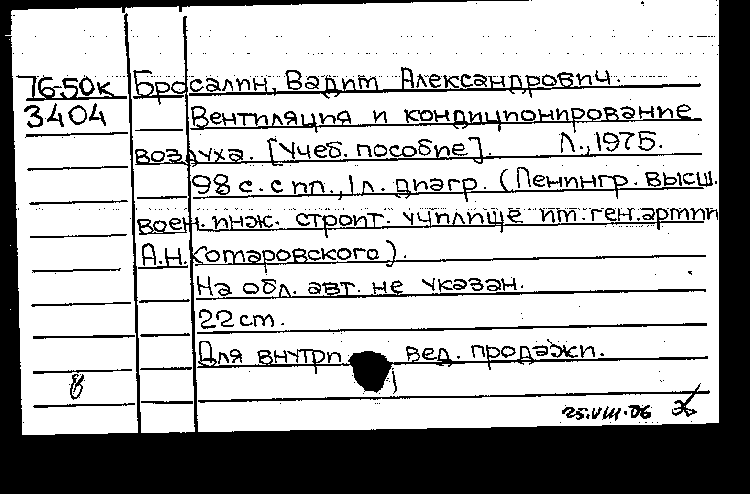 76-50к Бросалин, Вадим Александрович.
3404 Вентиляция и кондиционирование
воздуха. [Учеб. пособие]. Л., 1975.
98 с. с ил., 1 л. диагр. (Ленингр. высш.
воен. инж. строит. училище им. ген. армии
А.Н. Комаровского).
На обл. авт. не указан.
22 см.
Для внутри вед. продажи.
8
25.VIII.06